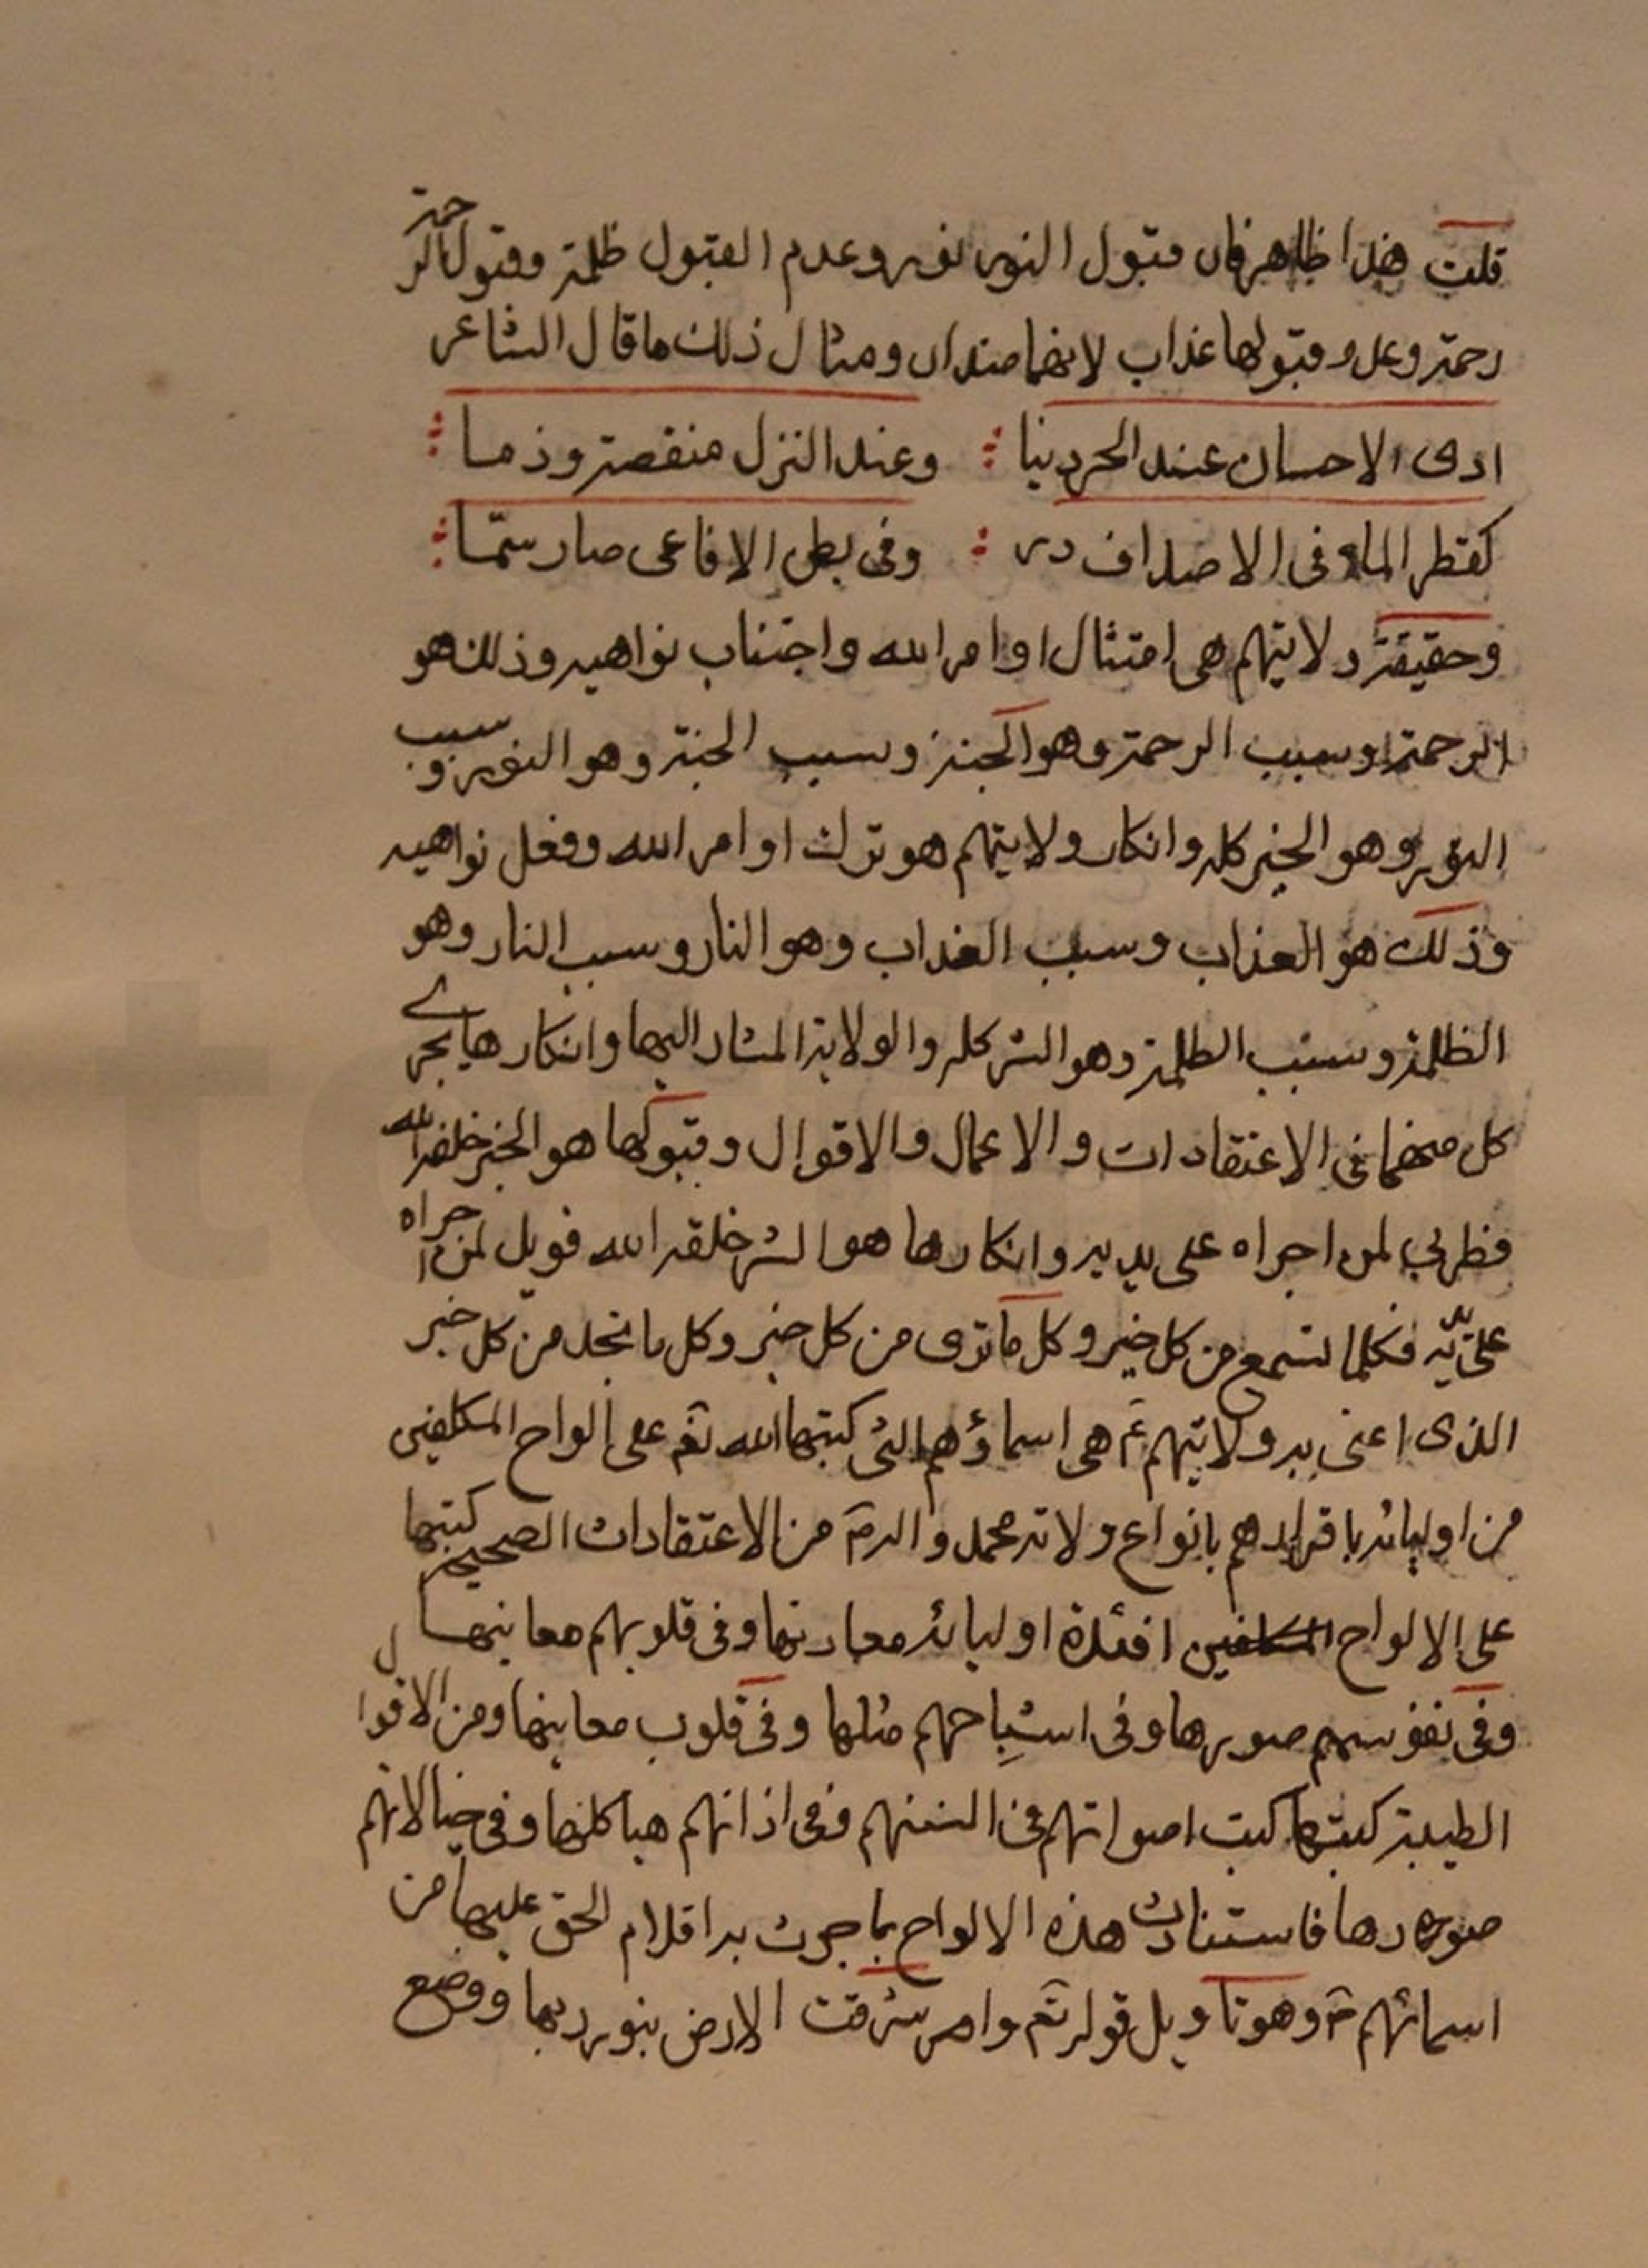 قلت هذا ظاهر فان قبول النور نور وعدم القبول ظلمة وقبول الرحمة
رحمة وعدم قبولها عذاب لانهما ضدان ومثال ذلك ما قال الشاعر
ارى الاحسان عند الحر دينا وعند النزل منقصة وذما
كقطر الماء في الاصداف در وفي بطن الافاعي صار سمّا
وحقيقة ولايتهم هي امتثال اوامر الله واجتناب نواهيه وذلك هو
الرحمة وسبب الرحمة وهو الجنة وسبب الجنة وهو النور وسبب
النور وهو الخير كله وانكار ولايتهم هو ترك اوامر الله وفعل نواهيه
وذلك هو العذاب وسبب العذاب وهو النار وسبب النار وهو
الظلمة وسبب الظلمة وهو الشر كله والولاية المشار اليها وانكارها يجرى
كل منهما في الاعتقادات والاعمال والاقوال وقبولها هو الخير خلقه الله
فطوبى لمن اجراه على يديه وانكارها هو الشر خلقه الله فويل لمن اجراه
على يديه فكلما تسمع من كل خير وكل ما ترى من كل خير وكل ما تجد من كل خير
الذى اعنى به ولايتهم ع هي اسماؤهم التى كتبها الله تعٓ على الواح المكلفين
من اوليائه باقرارهم بانواع ولاية محمد واله صٓ من الاعتقادات الصحيحة كتبها
على الالواح افئدة اوليائه معارفها وفى قلوبهم معانيها
وفى نفوسهم صورها وفى اشباحهم مثلها وفى قلوب معانيها ومن الاقوال
الطيبة كتبها كتب اصواتهم في السنتهم وفى اذانهم هياكلها وفى خيالاتهم
صورها فاستنارت هذه الالواح بما جرت به اقلام الحق عليها من
اسمائهم عٓ وهو تاويل قوله تعٓ واشرقت الارض بنور ربها ووضع